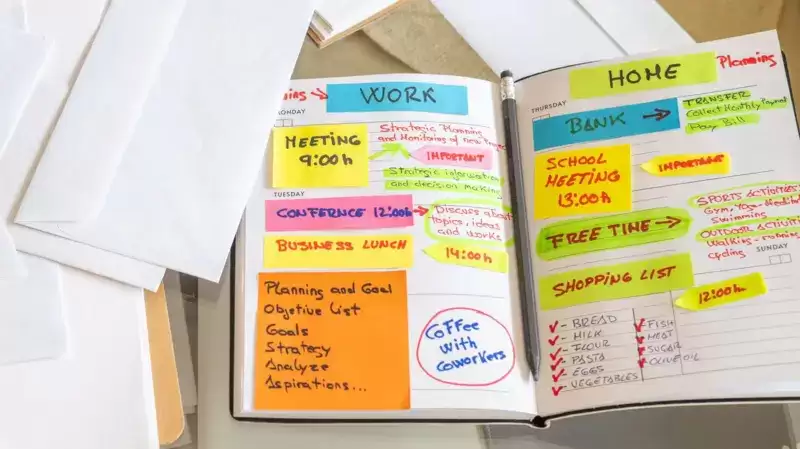 WORK
MONDAY
MEETING
9:00h
Strategic Planning
and Monitoring of new
IMPORTANT
Strategic information
and decision making
TUESDAY
CONFERNCE 12:00h
Discuss about
topics, ideas
and works
BUSINESS LUNCH
14:00h
Planning and Goal
Objetive List
Goals
Strategy
Analyze
Aspirations...
Coffee
with
coworkers
HOME
Planning
THURSDAY
BANK
TRANSFER
Collect Monthly Payment
Pay Bill
SCHOOL
MEETING
13:00h
IMPORTANT
FREE TIME
SPORTS ACTIVITIES
Swimming
OUTDOOR ACTIVITI
Walking - running
cycling
SUNDAY
SHOPPING LIST
12:00h
- BREAD
- MILK
- FLOUR
- PASTA
- EGGS
- VEGETABLES
- FISH
- MEAT
- SUGAR
- OLIVE OIL